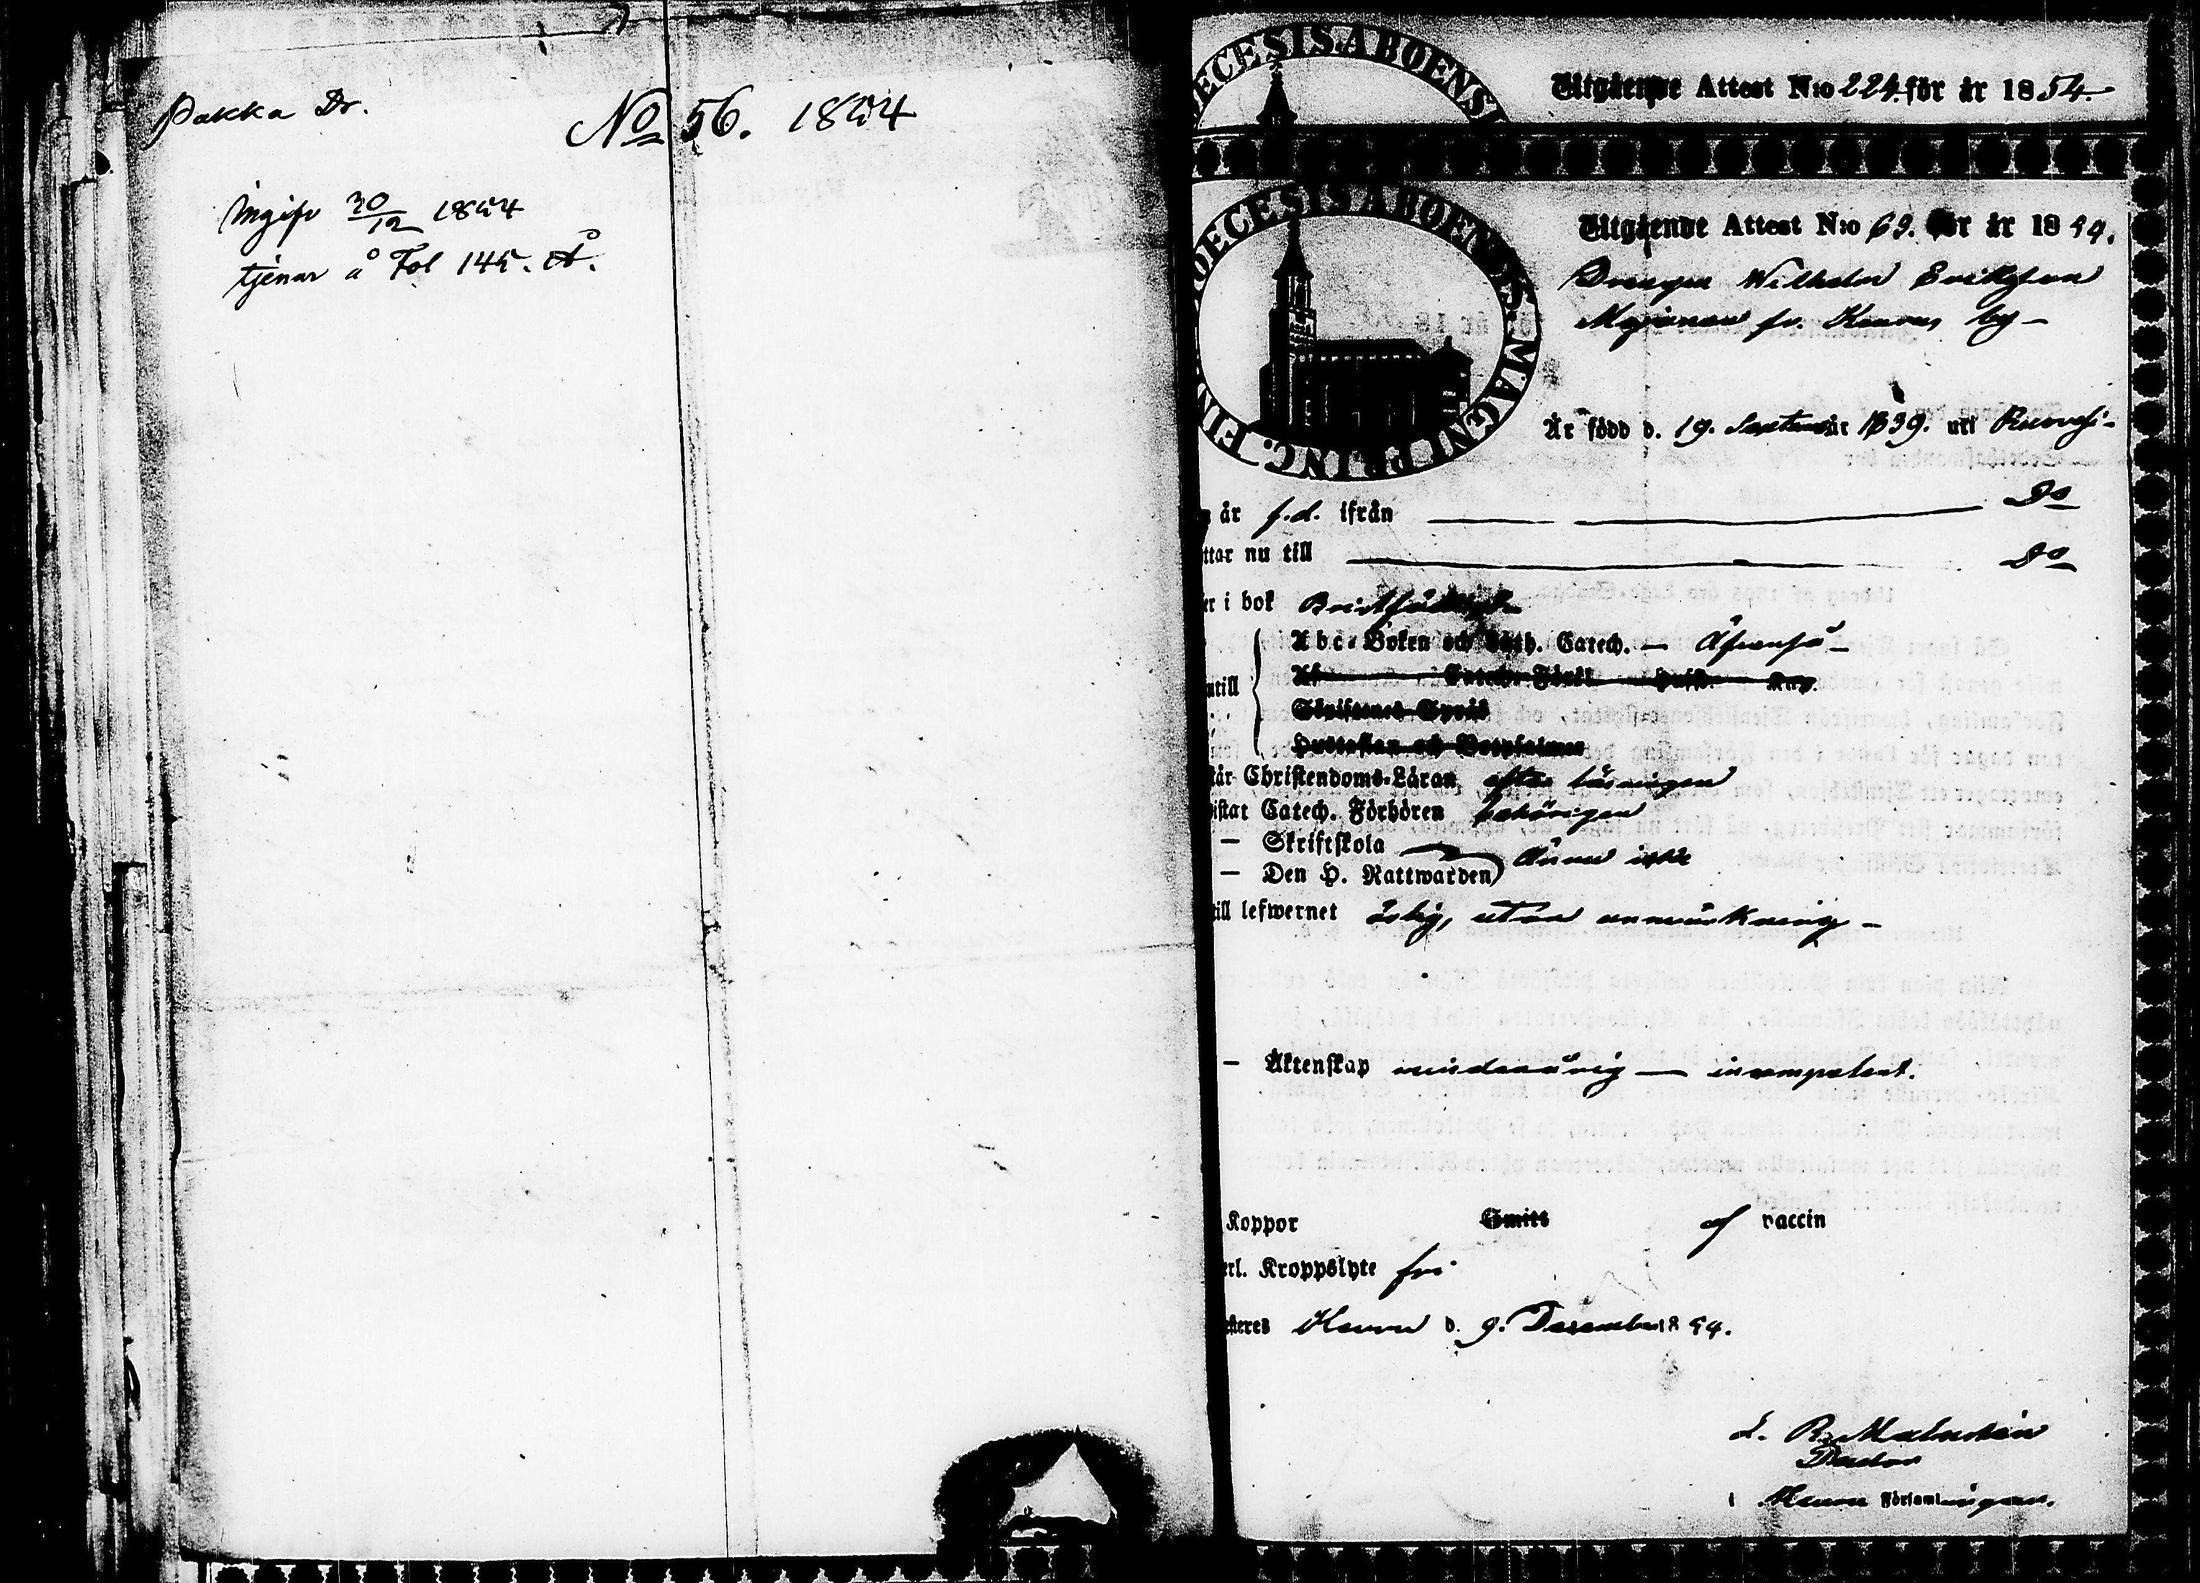 Pakka Dr.
No 56. 1854
Ingifv 30/12 1854
tjenar å Fol 145. Å.
DECESIS ABOENSI
Utgående Attest N:o 224. för år 1854.
DIOECESIS ABOENSIS MAGNI PRINC. FIN
Utgående Attest N:o 69. för år 1854.
Drängen Wilhelm Eriksson
fr. by –
Är född d. 19. September 1839. uti Rumsi-
år f.d. ifrån — Do
ttar nu till — Do
er i bok
Abc-Boken och Luth. Catech. – Äfvenså –
ntill Catech. Förkl. Hufst. Kap.
Skriftenes Språk
Hustaflan och Botpsalmer
tår Christendoms-Läran efter läsningen
istat Catech. Förhören behörigen
– Skriftskola
– Den H. Nattwarden Ännu icke
till lefwernet ärlig, utan anmärkning –
– Äktenskap minderårig — incompetent.
Koppor Smitt af vaccin
erl. Kroppslyte fri
esteres d. 9. December 1854.
Pastor
i Församlingen.